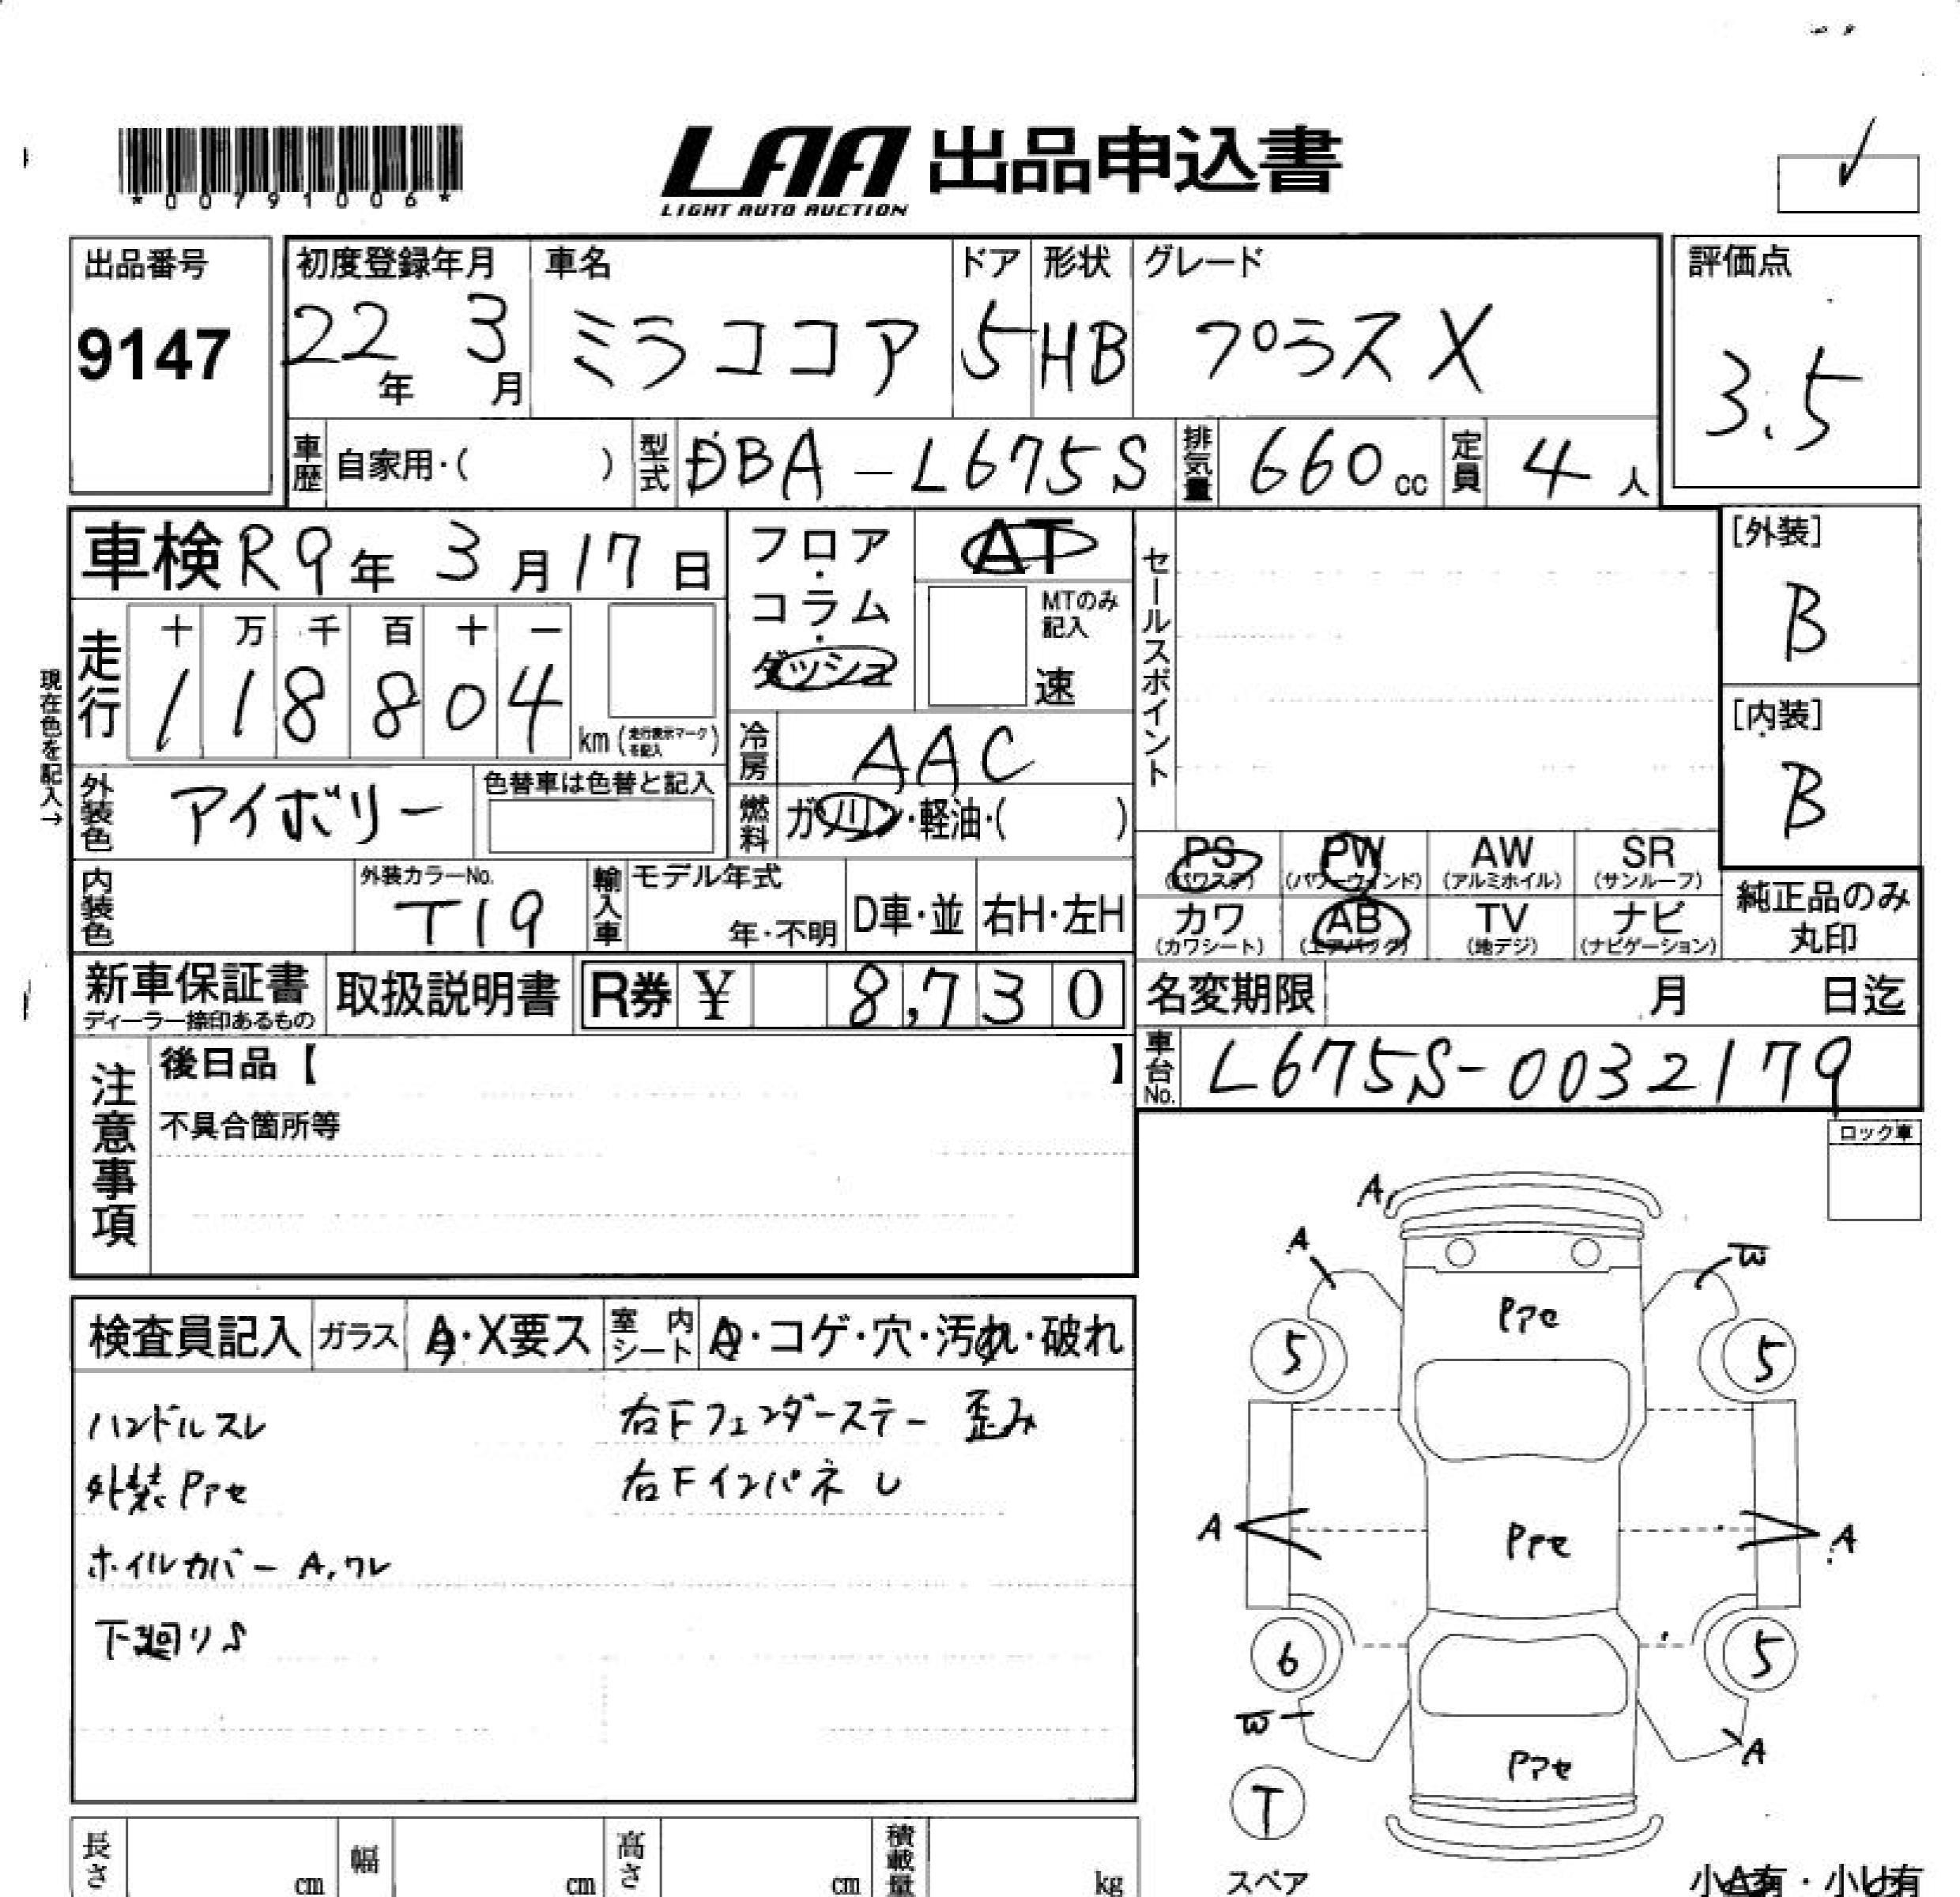 *00791006*
LAA 出品申込書
LIGHT AUTO AUCTION
出品番号
9147
初度登録年月
22年 3月
車名
ミラココア
ドア
5
形状
HB
グレード
プラスX
評価点
3.5
車歴 自家用・( )
型式 DBA-L675S
排気量 660cc
定員 4人
車検 R9年 3月17日
フロア・コラム・ダッシュ
AT
MTのみ記入
速
セールスポイント
[外装]
B
[内装]
B
現在色を記入→
走行
十 万 千 百 十 一
1 1 8 8 0 4 km (走行表示マークを記入)
冷房 AAC
外装色 アイボリー
色替車は色替と記入
燃料 ガソリン・軽油・( )
PS (パワステ)
PW (パワーウィンド)
AW (アルミホイル)
SR (サンルーフ)
内装色
外装カラーNo.
T19
輸入車
モデル年式
年・不明
D車・並
右H・左H
カワ (カワシート)
AB (エアバック)
TV (地デジ)
ナビ (ナビゲーション)
純正品のみ丸印
新車保証書
ディーラー捺印あるもの
取扱説明書
R券 ¥ 8,730
名変期限 月 日迄
車台No. L675S-0032179
注意事項
後日品【 】
不具合箇所等
ロック車
検査員記入
ガラス A・X要ス
室内シート A・コゲ・穴・汚れ・破れ
ハンドルスレ
外装Pアセ
ホイルカバーA,ワレ
下廻りS
右Fフェンダーステー 歪み
右Fインパネ U
A
A
W
Pアセ
5
5
A
Pアセ
A
6
5
W
A
Pアセ
T
スペア
小A有・小U有
長さ cm
幅 cm
高さ cm
積載量 kg